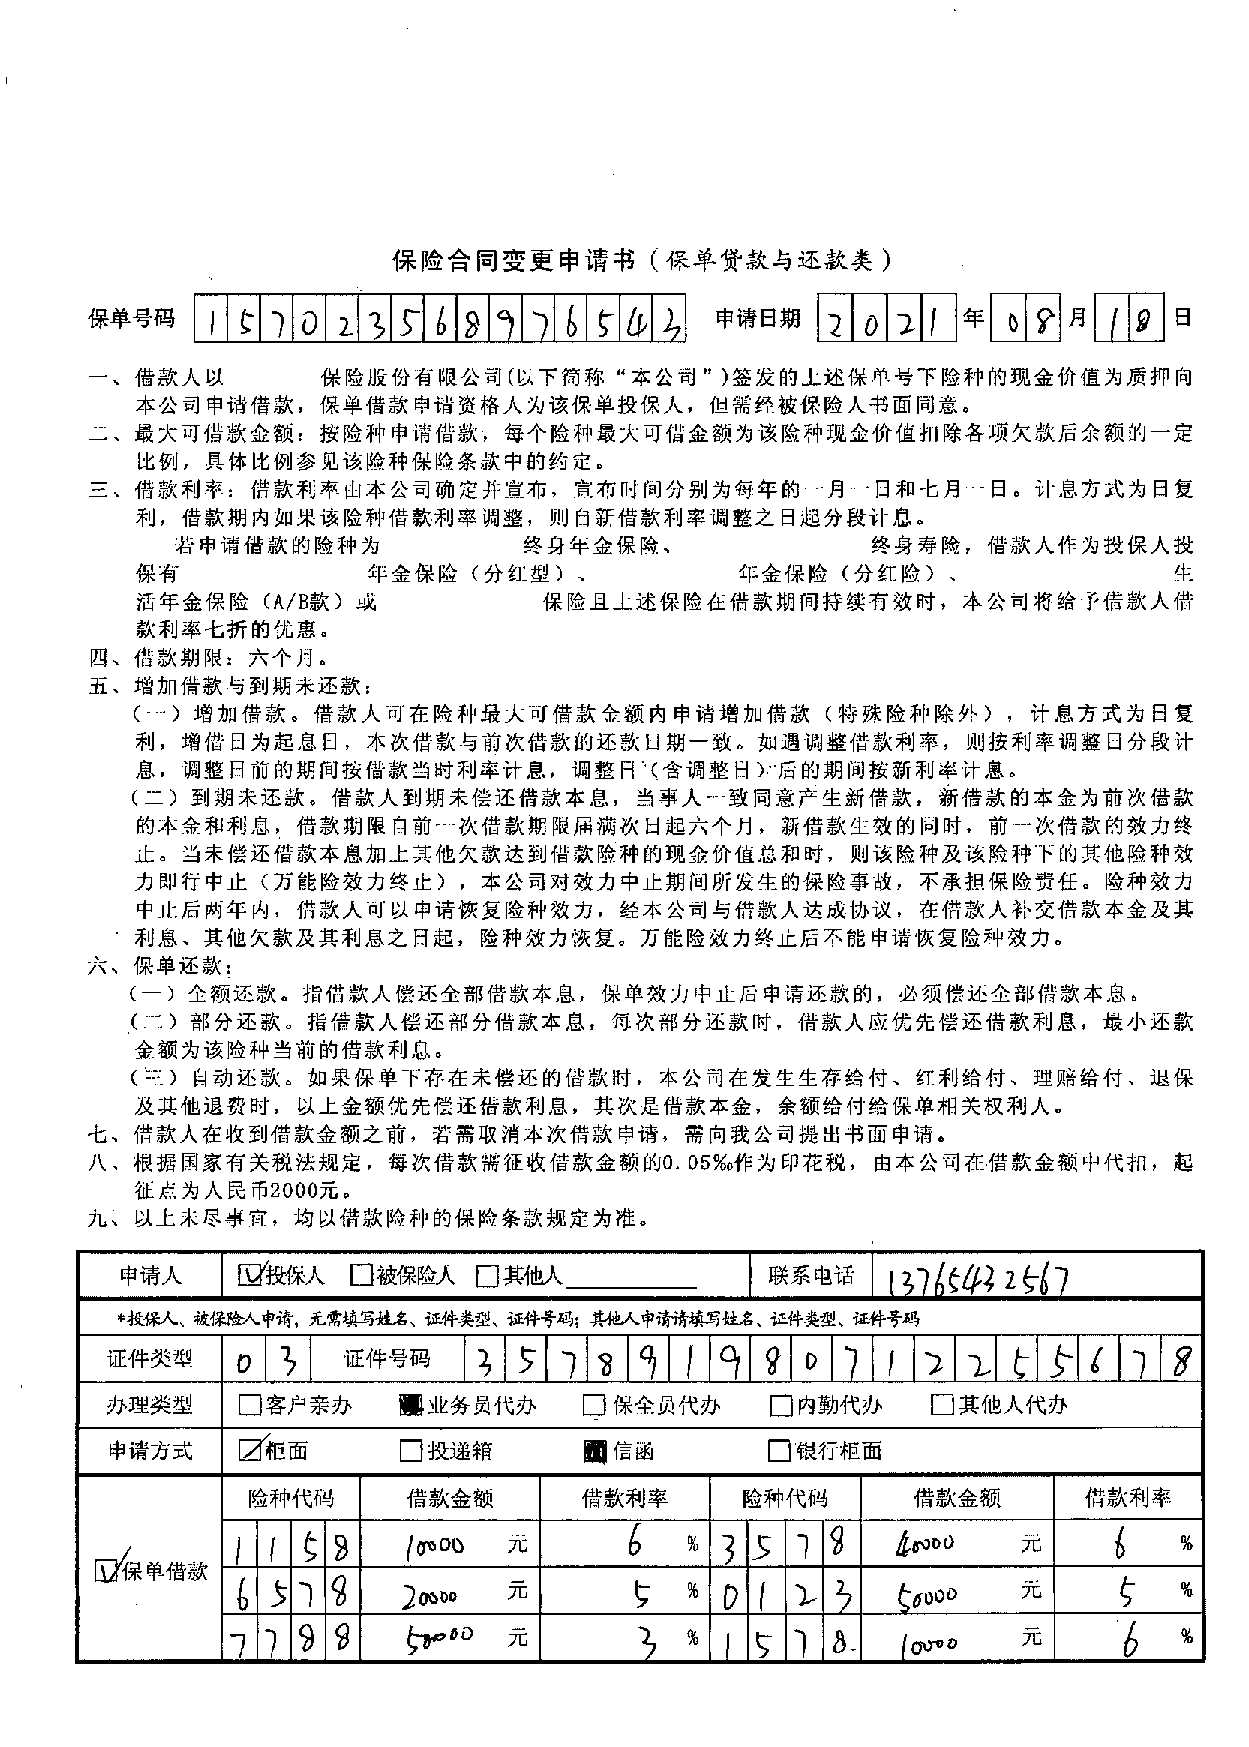 保险合同变更申请书（保单贷款与还款类）
保单号码 157023568976543 申请日期 2021年08月18日
一、借款人以 保险股份有限公司(以下简称“本公司”)签发的上述保单号下险种的现金价值为质押向
本公司申请借款，保单借款申请资格人为该保单投保人，但需经被保险人书面同意。
二、最大可借款金额：按险种申请借款，每个险种最大可借金额为该险种现金价值扣除各项欠款后余额的一定
比例，具体比例参见该险种保险条款中的约定。
三、借款利率：借款利率由本公司确定并宣布，宣布时间分别为每年的一月一日和七月一日。计息方式为日复
利，借款期内如果该险种借款利率调整，则自新借款利率调整之日起分段计息。
若申请借款的险种为 终身年金保险、 终身寿险，借款人作为投保人投
保有 年金保险（分红型）、 年金保险（分红险）、 生
活年金保险（A/B款）或 保险且上述保险在借款期间持续有效时，本公司将给予借款人借
款利率七折的优惠。
四、借款期限：六个月。
五、增加借款与到期未还款：
（一）增加借款。借款人可在险种最大可借款金额内申请增加借款（特殊险种除外），计息方式为日复
利，增借日为起息日，本次借款与前次借款的还款日期一致。如遇调整借款利率，则按利率调整日分段计
息，调整日前的期间按借款当时利率计息，调整日（含调整日）后的期间按新利率计息。
（二）到期未还款。借款人到期未偿还借款本息，当事人一致同意产生新借款，新借款的本金为前次借款
的本金和利息，借款期限自前一次借款期限届满次日起六个月，新借款生效的同时，前一次借款的效力终
止。当未偿还借款本息加上其他欠款达到借款险种的现金价值总和时，则该险种及该险种下的其他险种效
力即行中止（万能险效力终止），本公司对效力中止期间所发生的保险事故，不承担保险责任。险种效力
中止后两年内，借款人可以申请恢复险种效力，经本公司与借款人达成协议，在借款人补交借款本金及其
利息、其他欠款及其利息之日起，险种效力恢复。万能险效力终止后不能申请恢复险种效力。
六、保单还款：
（一）全额还款。指借款人偿还全部借款本息，保单效力中止后申请还款的，必须偿还全部借款本息。
（二）部分还款。指借款人偿还部分借款本息，每次部分还款时，借款人应优先偿还借款利息，最小还款
金额为该险种当前的借款利息。
（三）自动还款。如果保单下存在未偿还的借款时，本公司在发生生存给付、红利给付、理赔给付、退保
及其他退费时，以上金额优先偿还借款利息，其次是借款本金，余额给付给保单相关权利人。
七、借款人在收到借款金额之前，若需取消本次借款申请，需向我公司提出书面申请。
八、根据国家有关税法规定，每次借款需征收借款金额的0.05‰作为印花税，由本公司在借款金额中代扣，起
征点为人民币2000元。
九、以上未尽事宜，均以借款险种的保险条款规定为准。
申请人 ☑投保人 □被保险人 □其他人 联系电话 13765432567
*投保人、被保险人申请，无需填写姓名、证件类型、证件号码；其他人申请请填写姓名、证件类型、证件号码
证件类型 03 证件号码 357891198071225 5678
办理类型 □客户亲办 ■业务员代办 □保全员代办 □内勤代办 □其他人代办
申请方式 ☑柜面 □投递箱 ■信函 □银行柜面
险种代码 借款金额 借款利率 险种代码 借款金额 借款利率
☑保单借款
1158 10000 元 6 % 3578 40000 元 6 %
6578 20000 元 5 % 0123 50000 元 5 %
7788 50000 元 3 % 1578 10000 元 6 %